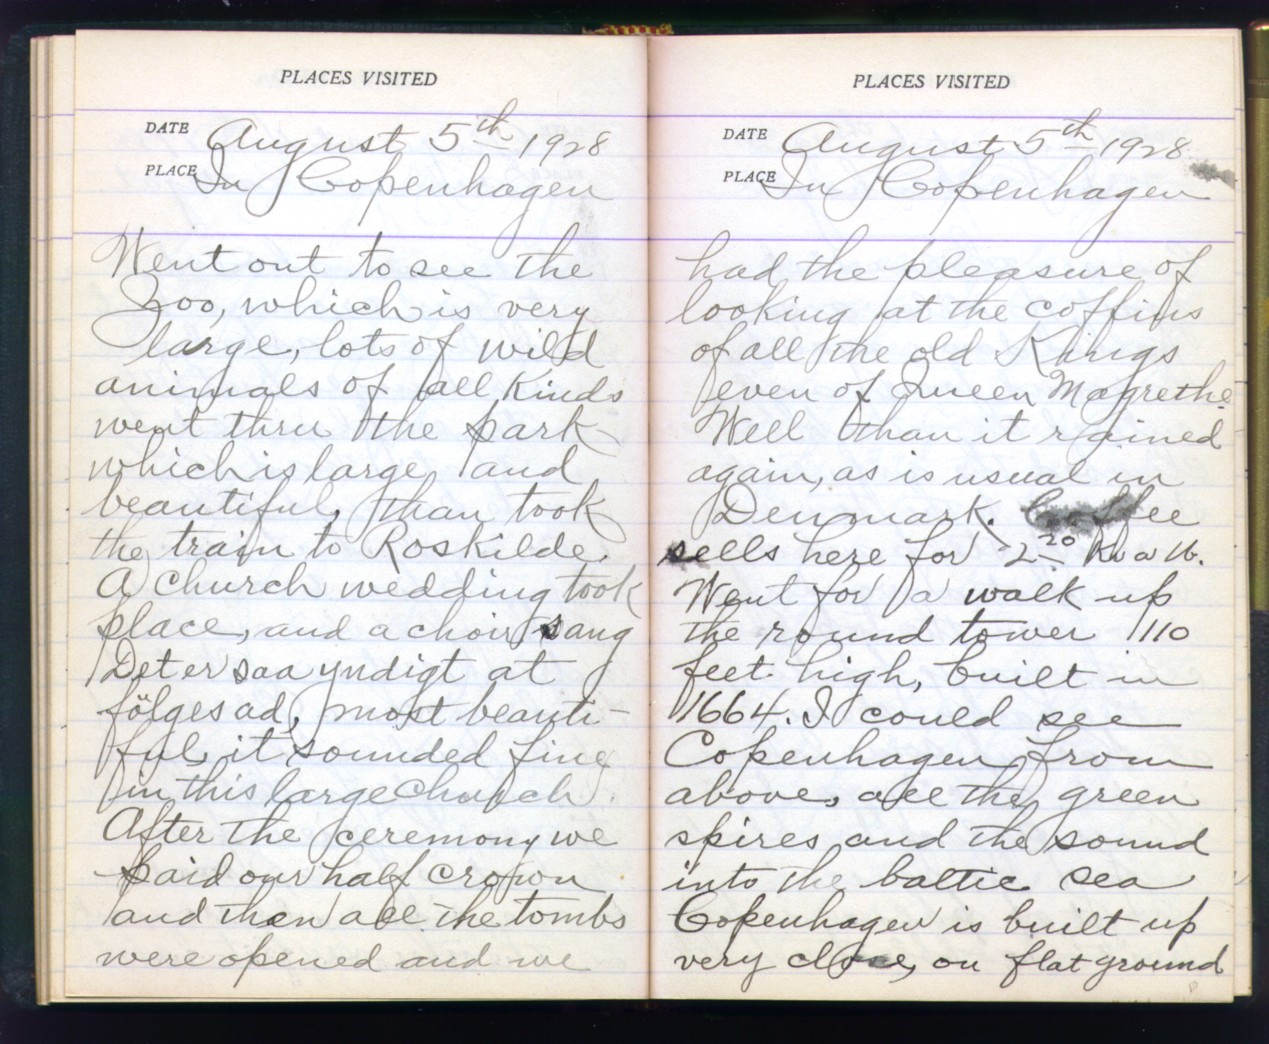 PLACES VISITED
DATE August 5th 1928
PLACE In Copenhagen
Went out to see the
Zoo, which is very
large, lots of wild
animals of all kinds
went thru the park
which is large, and
beautiful, than took
the train to Roskilde.
A church wedding took
place, and a choir sang
Det er saa yndigt at
fölges ad, most beauti-
ful, it sounded fine
in this large Church.
After the ceremony we
paid our half crown
and then all the tombs
were opened and we
PLACES VISITED
DATE August 5th 1928
PLACE In Copenhagen
had the pleasure of
looking at the coffins
of all the old Kings
even of Queen Magrethe.
Well than it rained
again, as is usual in
Denmark. Coffee
sells here for 2 20 Kr a lb.
Went for a walk up
the round tower 110
feet high, built in
1664. I could see
Copenhagen from
above, all the green
spires and the sound
into the baltic sea
Copenhagen is built up
very close, on flat ground